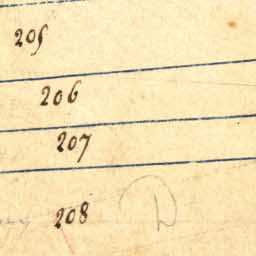 205
206
207
208 D